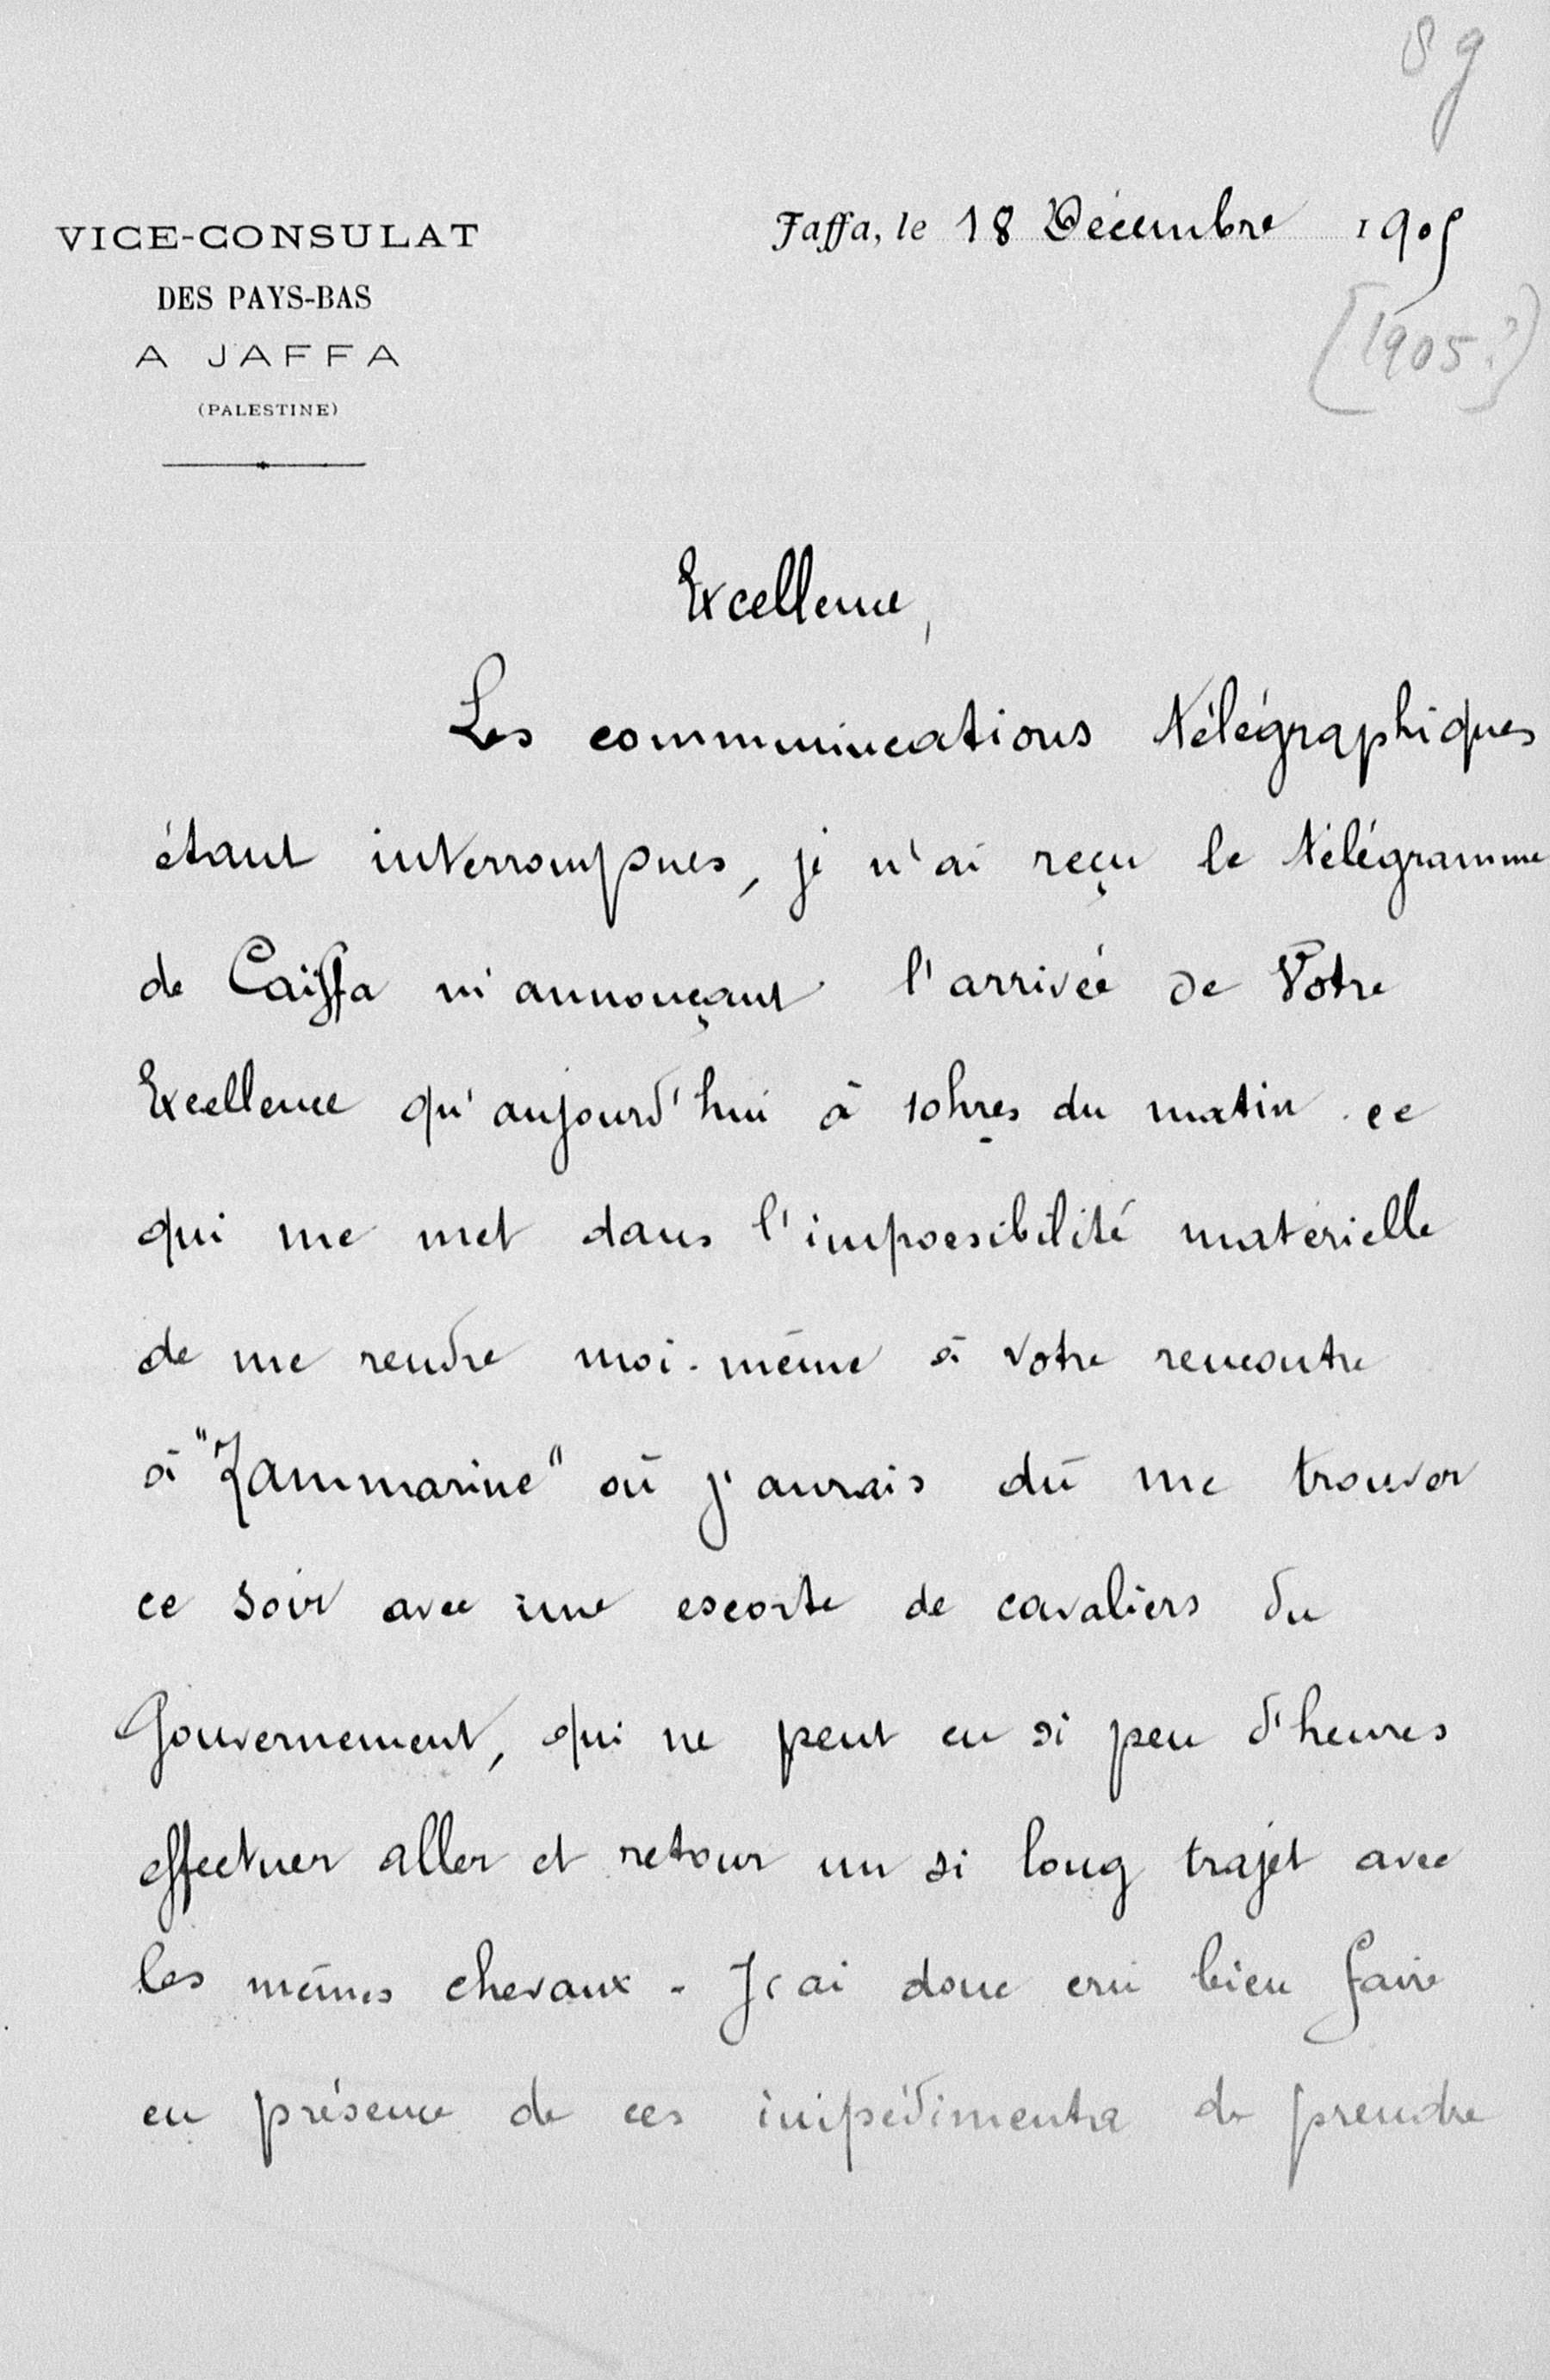 89
VICE-CONSULAT
DES PAYS-BAS
A JAFFA
(PALESTINE)
Jaffa, le 18 Décembre 1905
[1905?]
Excellence,
Les communications télégraphiques
étant interrompues, je n'ai reçu le télégramme
de Caïffa m'annonçant l'arrivée de Votre
Excellence qu'aujourd'hui à 10hres du matin ce
qui me met dans l'impossibilité matérielle
de me rendre moi-même à votre rencontre
à "Zammarine" où j'aurais dû me trouver
ce soir avec une escorte de cavaliers du
Gouvernement, qui ne peut en si peu d'heures
effectuer aller et retour un si long trajet avec
les mêmes chevaux - J'ai donc cru bien faire
en présence de ces impédimenta de prendre